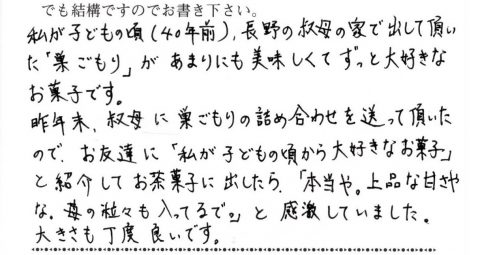 でも結構ですのでお書き下さい。
私が子どもの頃(40年前)、長野の叔母の家で出して頂い
た「巣ごもり」が あまりにも美味しくて ずっと大好きな
お菓子です。
昨年末、叔母に 巣ごもりの詰め合わせを送って頂いた
ので、お友達に「私が子どもの頃から大好きなお菓子」
と紹介してお茶菓子に出したら、「本当や。上品な甘さや
な。苺の粒々も入ってるで。」と 感激していました。
大きさも丁度良いです。